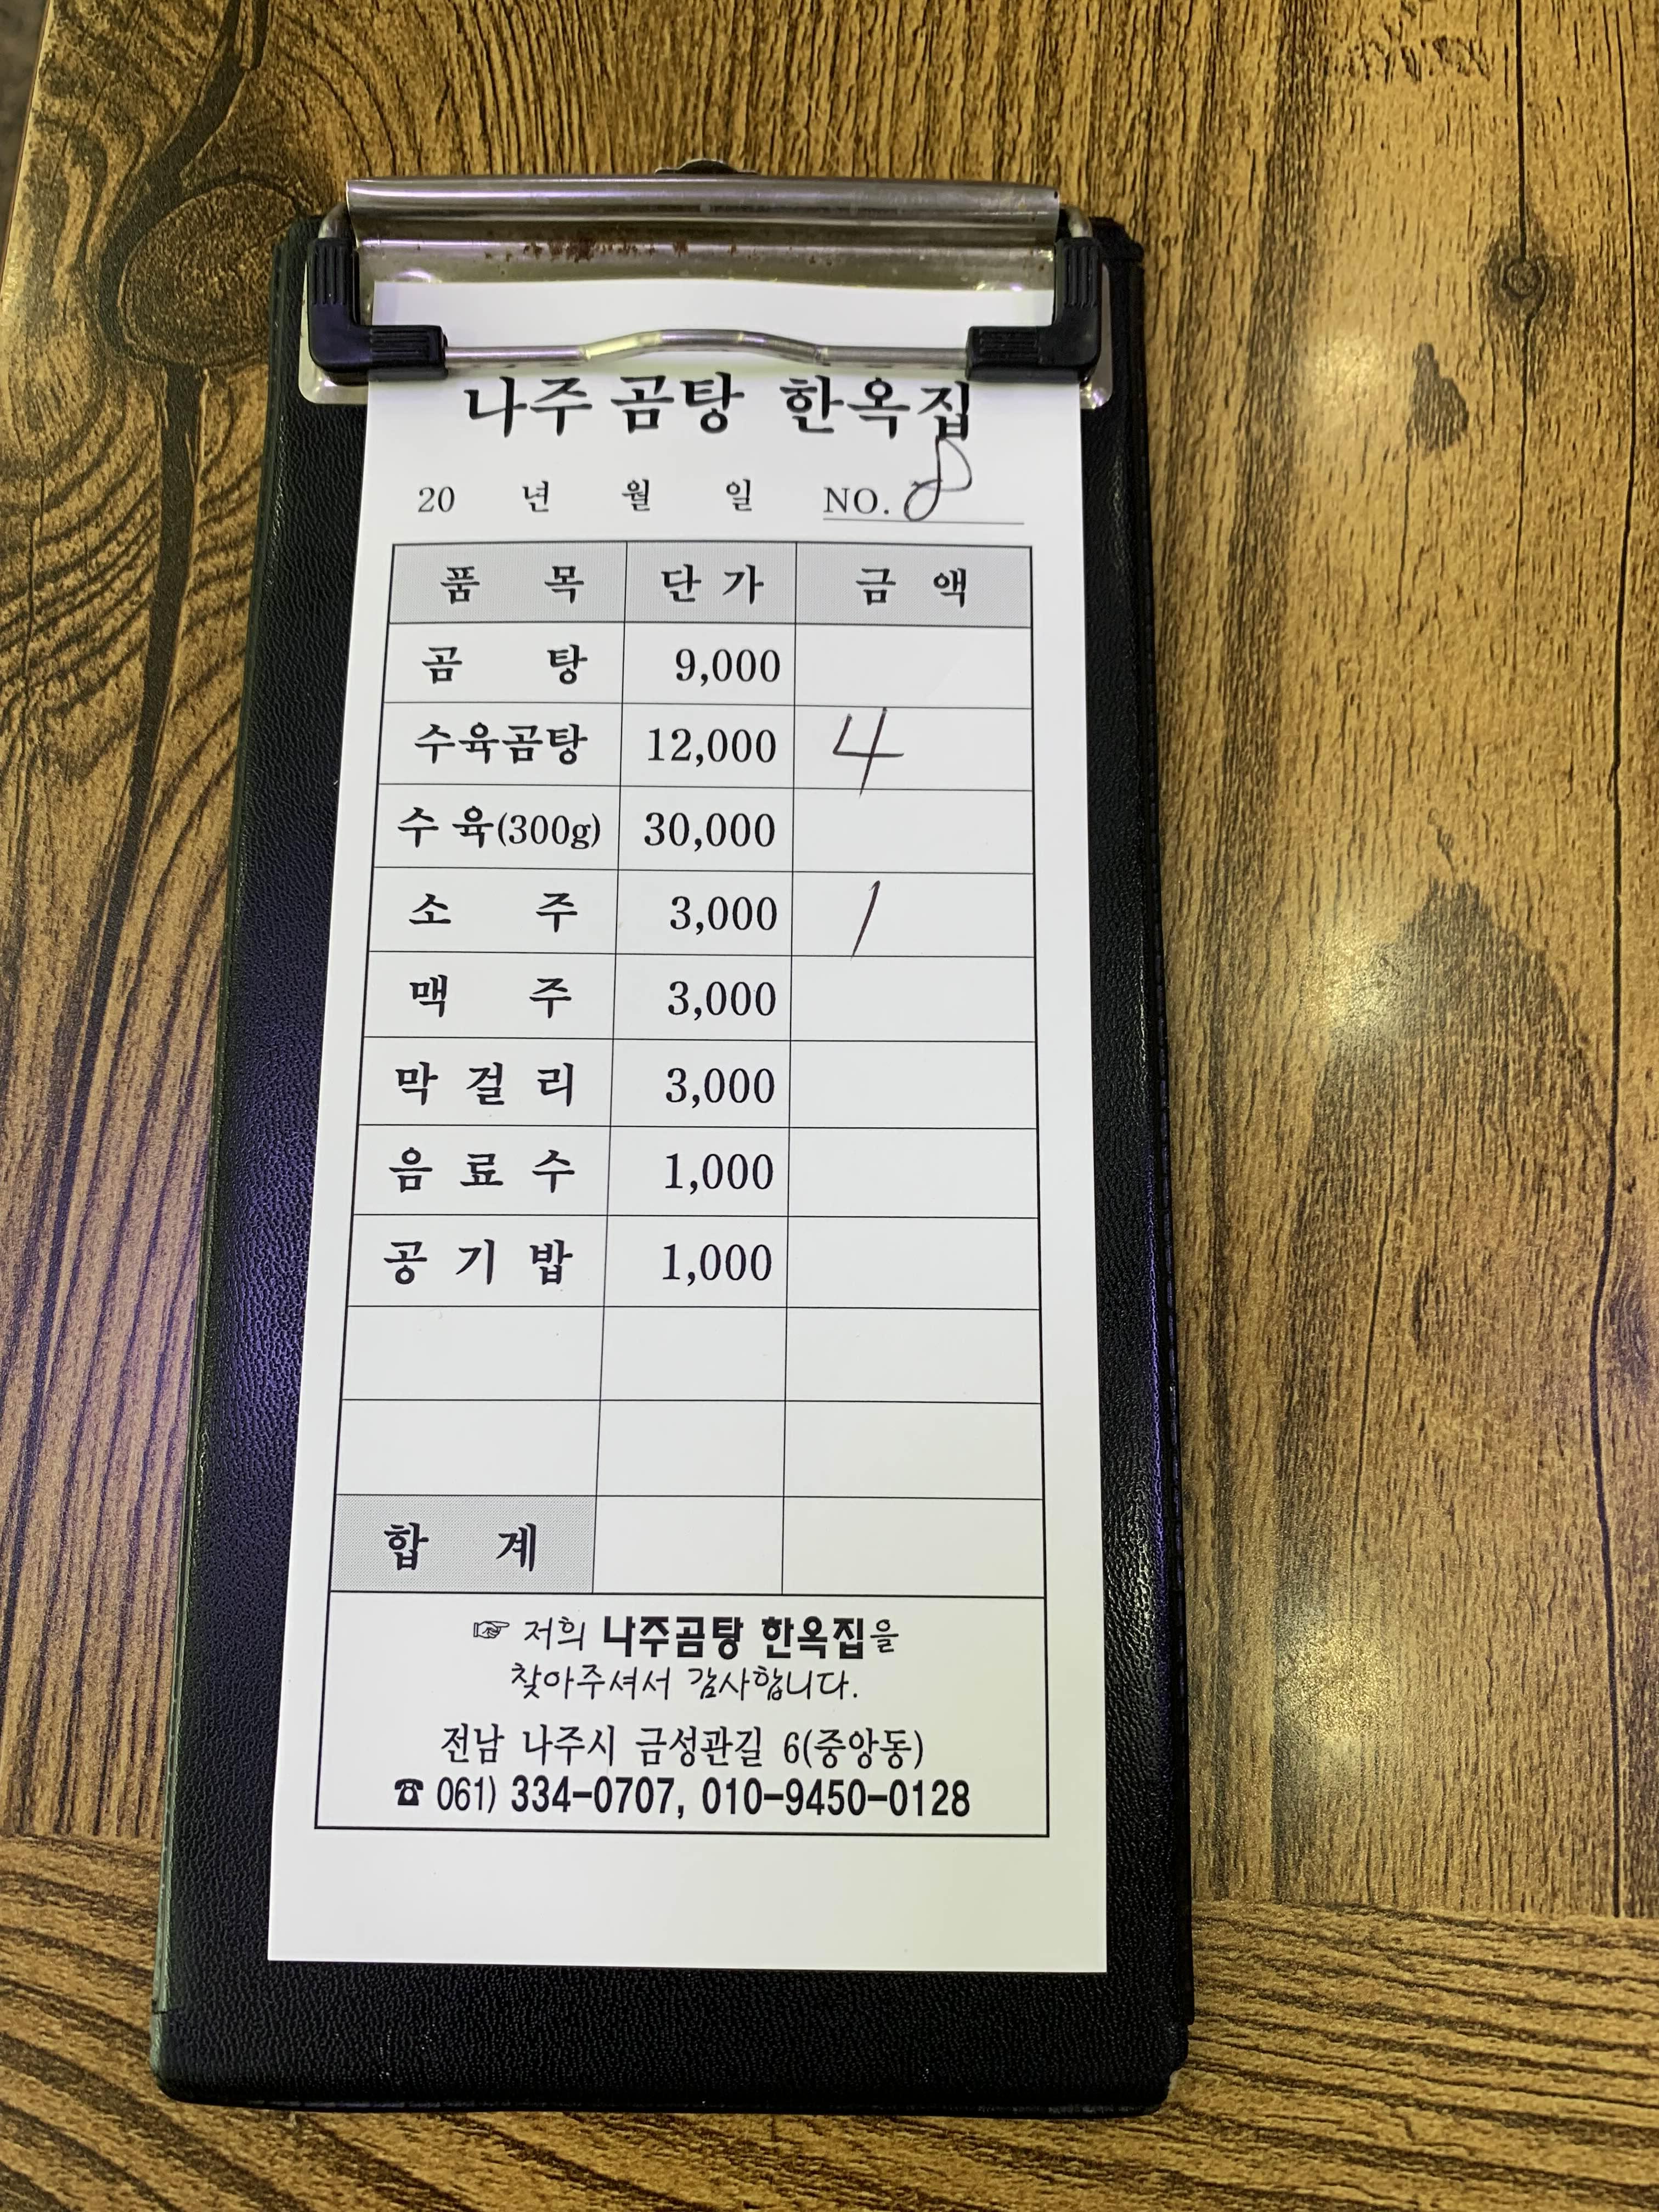 나주곰탕 한옥집
20 년 월 일 NO. 8
품목 단가 금액
곰탕 9,000
수육곰탕 12,000 4
수육(300g) 30,000
소주 3,000 1
맥주 3,000
막걸리 3,000
음료수 1,000
공기밥 1,000
합계
☞ 저희 나주곰탕 한옥집을
찾아주셔서 감사합니다.
전남 나주시 금성관길 6(중앙동)
☎ 061) 334-0707, 010-9450-0128